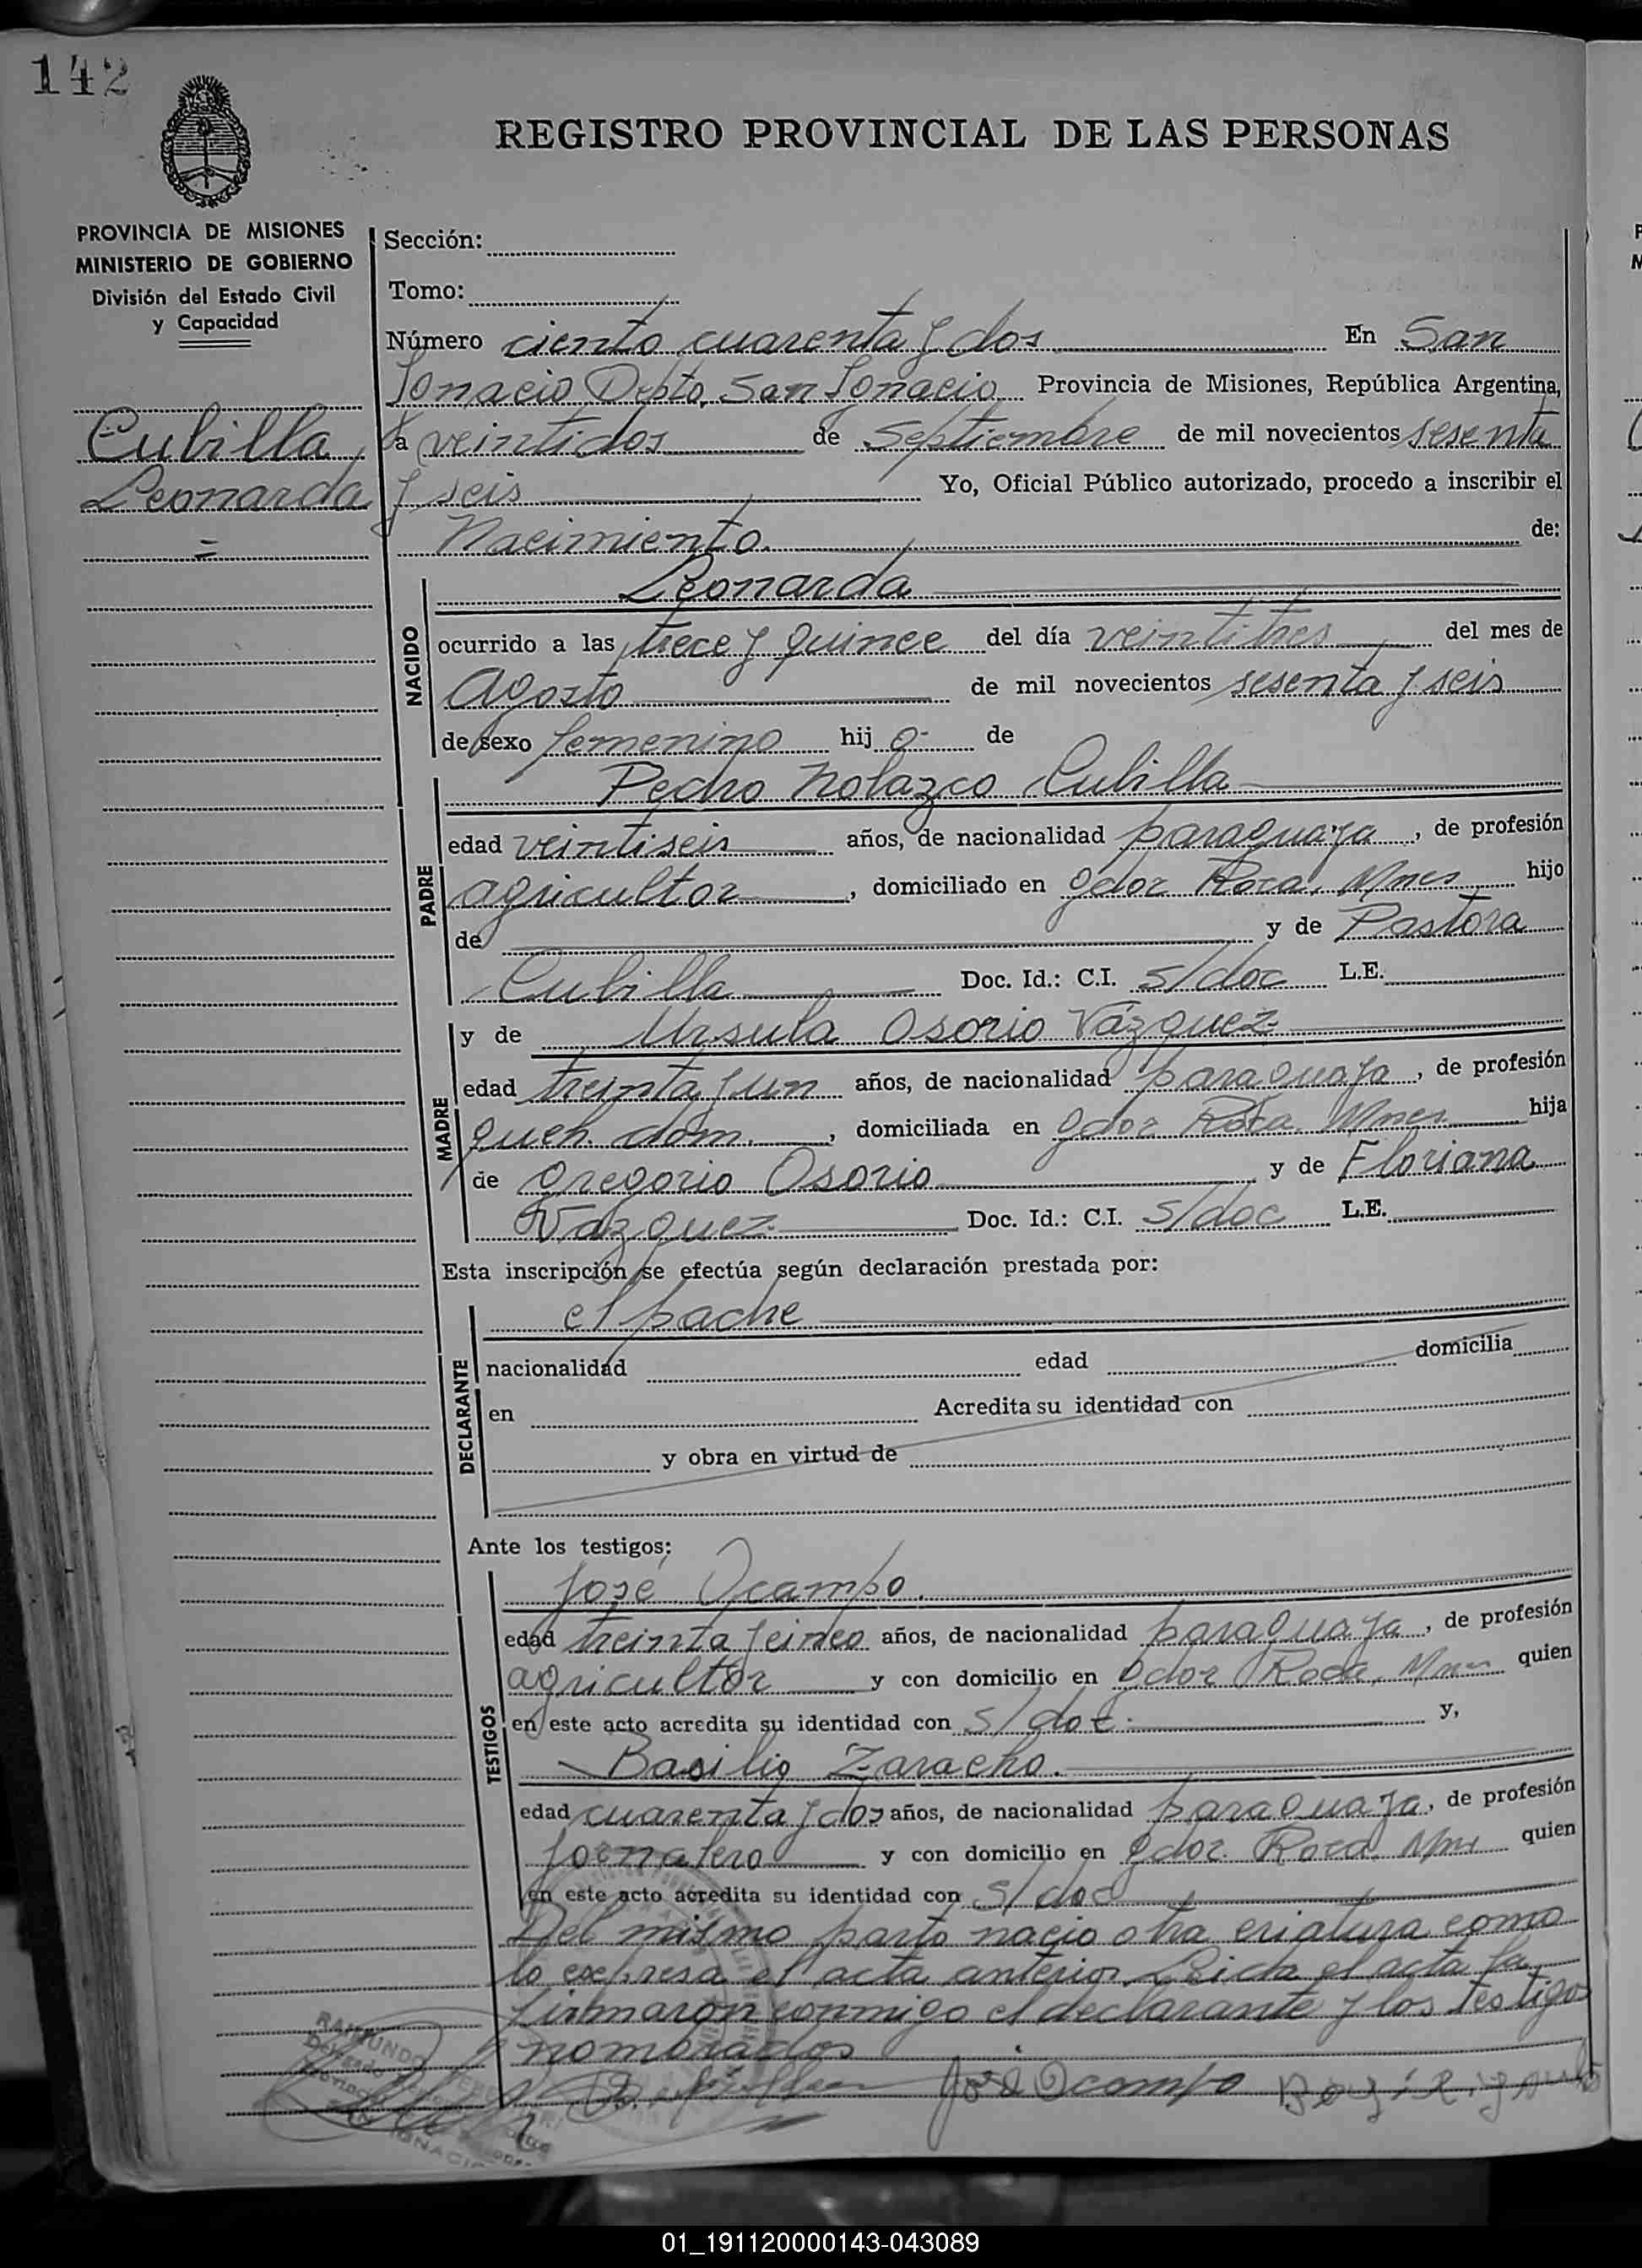 142
REGISTRO PROVINCIAL DE LAS PERSONAS
PROVINCIA DE MISIONES
MINISTERIO DE GOBIERNO
División del Estado Civil
y Capacidad
Cubilla,
Leonarda
=
Sección:
Tomo:
Número ciento cuarenta y dos En San
Ignacio Depto. San Ignacio Provincia de Misiones, República Argentina,
a veintidos de Septiembre de mil novecientos sesenta
y seis Yo, Oficial Público autorizado, procedo a inscribir el
Nacimiento de:
NACIDO
Leonarda
ocurrido a las trece y quince del día veintitres del mes de
Agosto de mil novecientos sesenta y seis
de sexo femenino hij a de
PADRE
Pedro Nolazco Cubilla
edad veintiseis años, de nacionalidad paraguaya, de profesión
agricultor, domiciliado en Gdor Roca, Mnes hijo
de y de Pastora
Cubilla Doc. Id.: C.I. s/doc L.E.
MADRE
y de Ursula Osorio Vázquez
edad treinta y un años, de nacionalidad paraguaya, de profesión
queh. dom., domiciliada en Gdor Roca, Mnes hija
de Gregorio Osorio y de Floriana
Vazquez Doc. Id.: C.I. s/doc L.E.
Esta inscripción se efectúa según declaración prestada por:
DECLARANTE
el padre
nacionalidad edad domicilia
en Acredita su identidad con
y obra en virtud de
Ante los testigos:
TESTIGOS
José Ocampo.
edad treinta y cinco años, de nacionalidad paraguaya, de profesión
agricultor y con domicilio en Gdor Roca, Mnes quien
en este acto acredita su identidad con s/doc. y,
Basilio Zaracho.
edad cuarenta y dos años, de nacionalidad paraguaya, de profesión
jornalero y con domicilio en Gdor. Roca, Mnes quien
en este acto acredita su identidad con s/doc
Del mismo parto nacio otra criatura como
lo expresa el acta anterior. Leida el acta la
firmaron conmigo el declarante y los testigos
nombrados
José Ocampo
RAIMUNDO
01_191120000143-043089